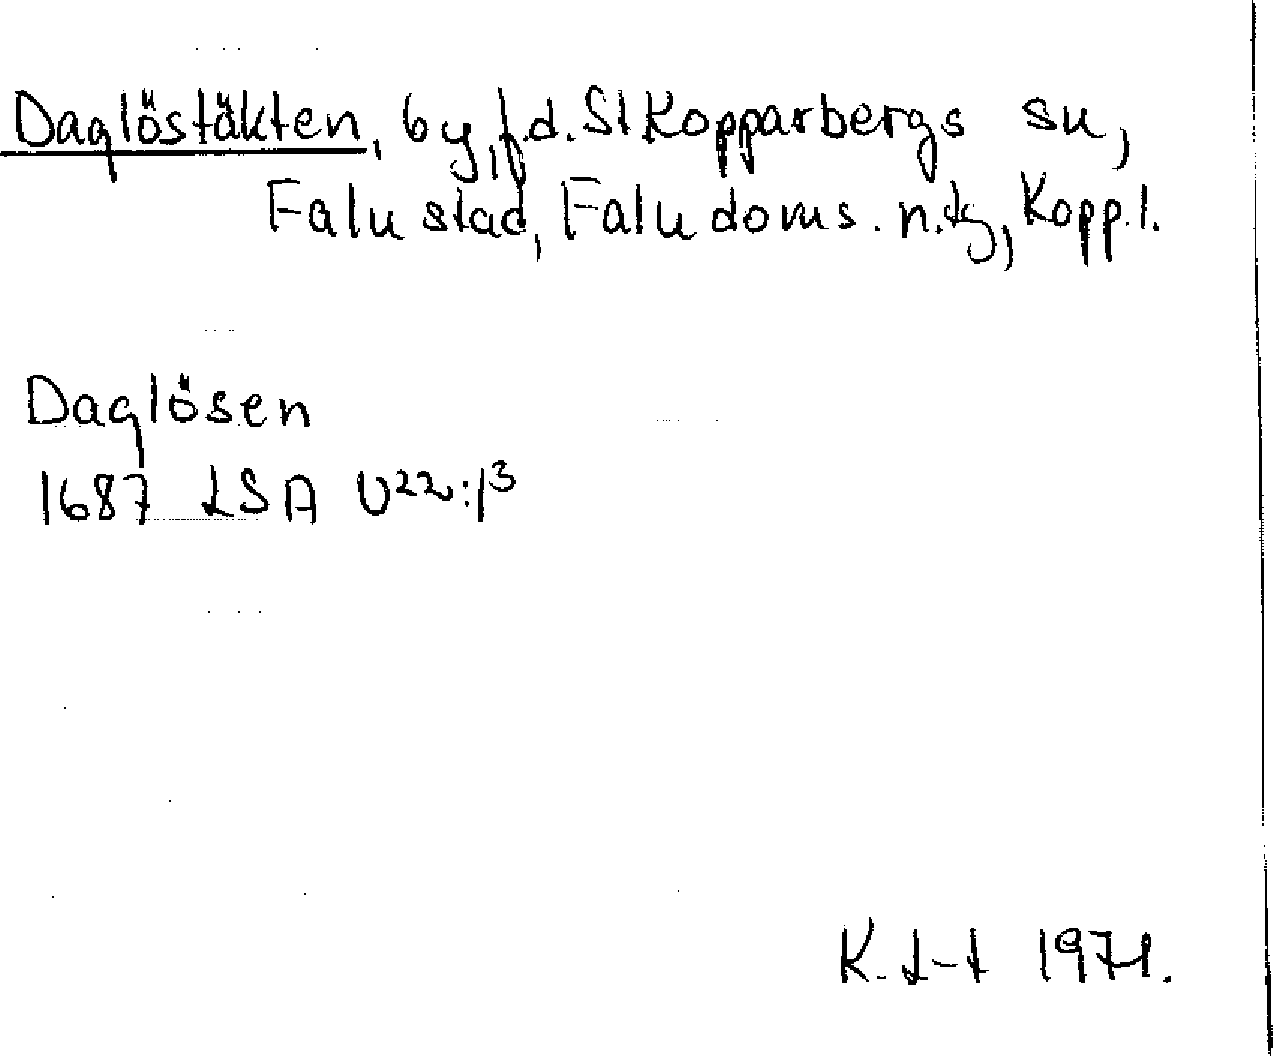 Daglöstäkten, by, f.d. St Kopparbergs sn,
Falu stad, Falu doms. n. tg, Kopp. l.
Daglösen
1687 LSA U22:/3
K. 1971.